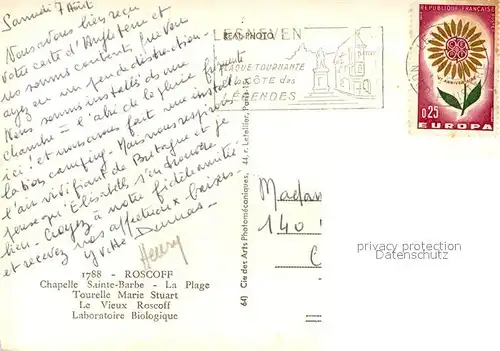 Samedi 7 Août
Nous avons bien reçu
votre carte d'Angleterre et
nous sommes contents que vous
ayez eu un peu de distraction.
Nous sommes installés dans une
chambre à l'abri de la pluie
ici ! et nous avons fait une
camping. Mais nous respirons
l'air vivifiant de Bretagne et je
pense qu'Elisabeth s'en trouvera
bien. Croyez à notre
et recevez nos affectueux baisers.
Yvette Dumas
Henry
1788 - ROSCOFF
Chapelle Sainte-Barbe - La Plage
Tourelle Marie Stuart
Le Vieux Roscoff
Laboratoire Biologique
64) Cie des Arts Photomécaniques, 44, r. Letellier, Paris-15
REAL-PHOTO
LESNEVEN
PLAQUE TOURNANTE
de la CÔTE des
LÉGENDES
REPUBLIQUE FRANÇAISE
0,25
EUROPA
Madam
140
privacy protection
Datenschutz